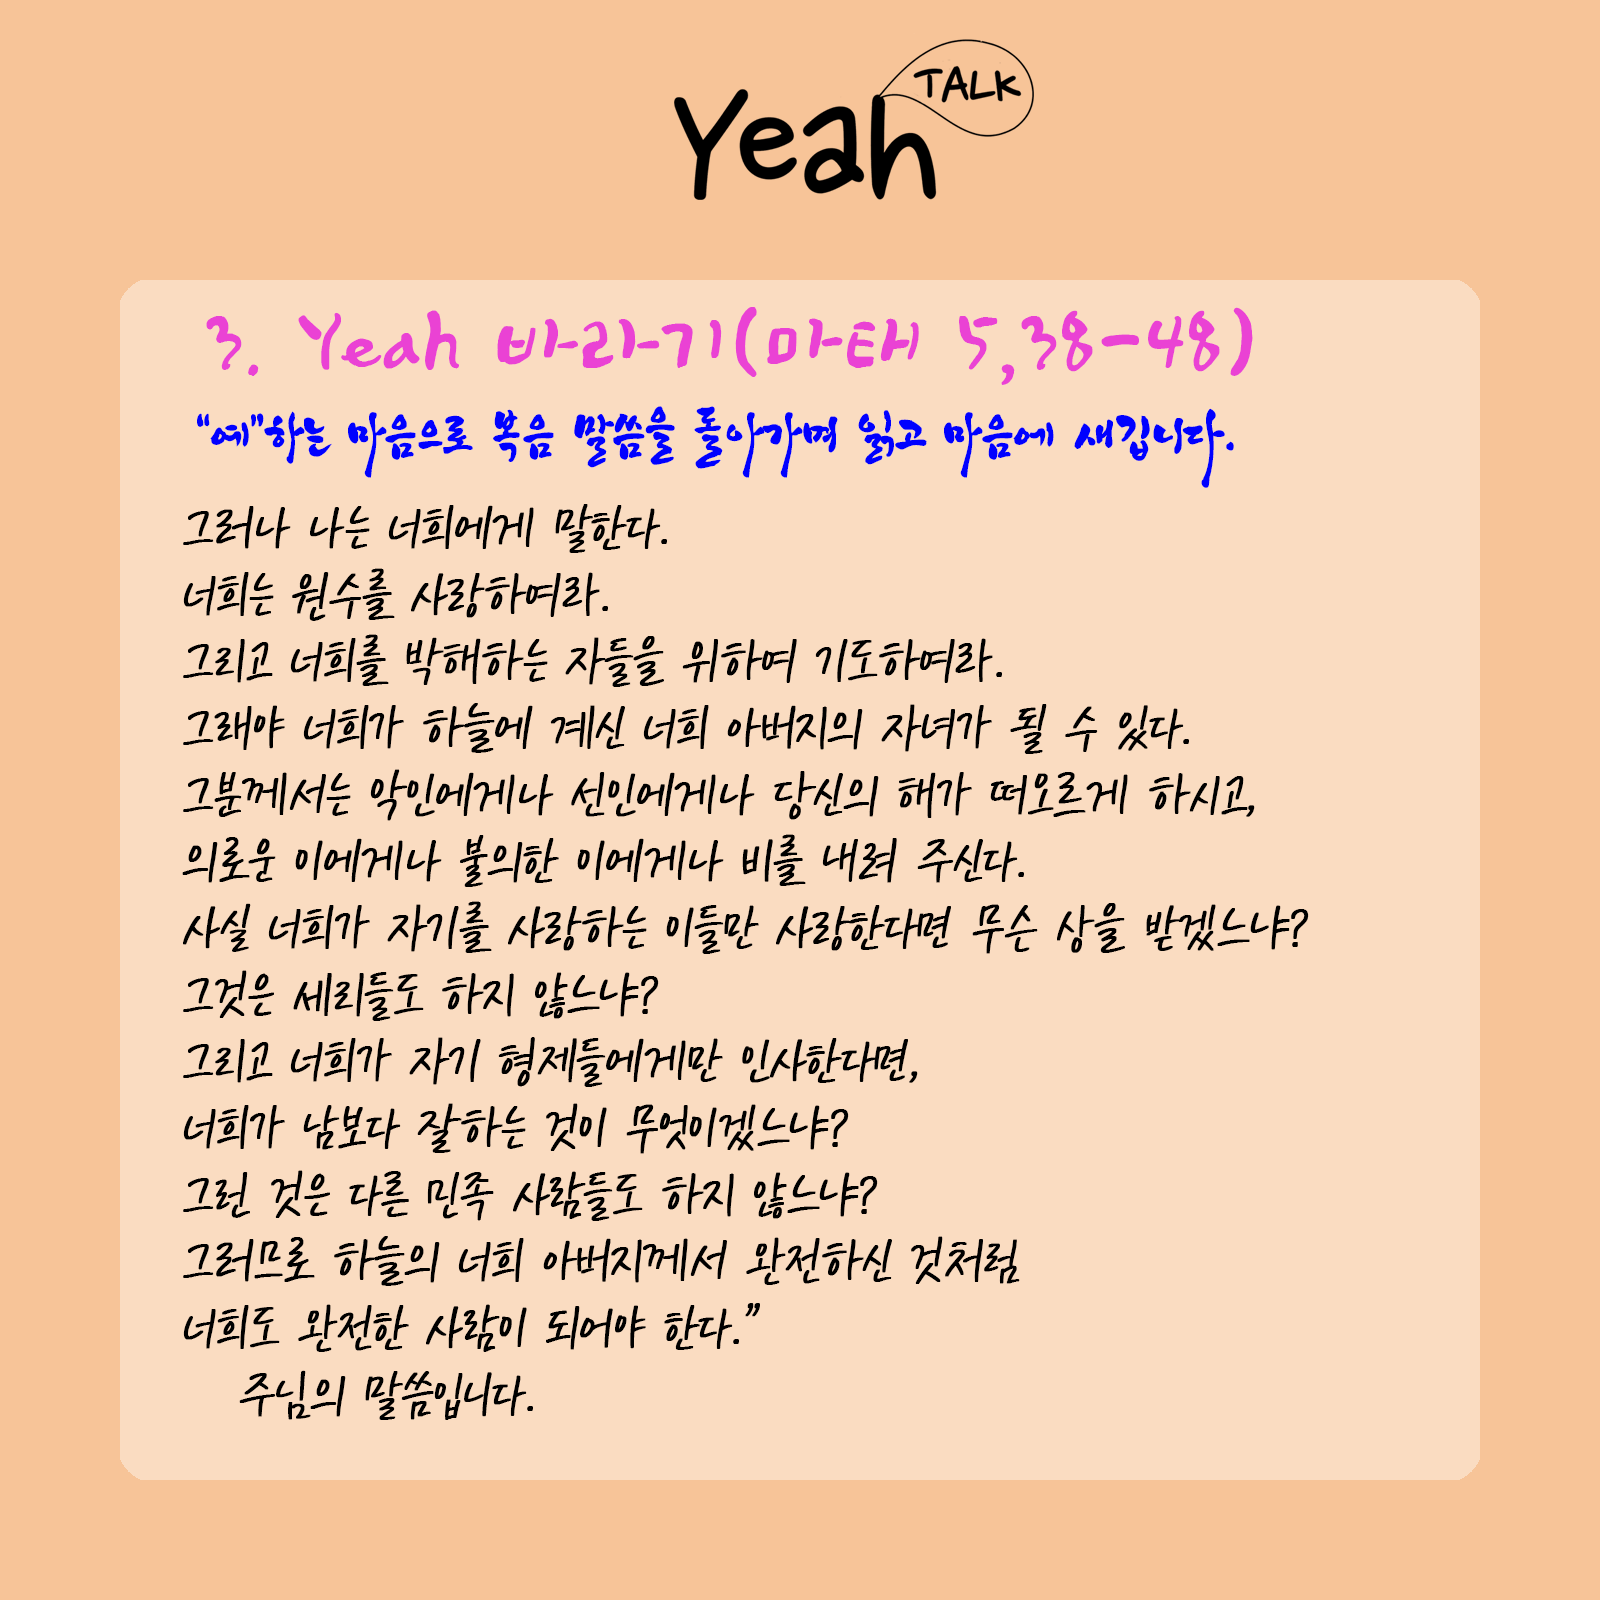 Yeah TALK
3. Yeah 바라기(마태 5,38-48)
“예”하는 마음으로 복음 말씀을 돌아가며 읽고 마음에 새깁니다.
그러나 나는 너희에게 말한다.
너희는 원수를 사랑하여라.
그리고 너희를 박해하는 자들을 위하여 기도하여라.
그래야 너희가 하늘에 계신 너희 아버지의 자녀가 될 수 있다.
그분께서는 악인에게나 선인에게나 당신의 해가 떠오르게 하시고,
의로운 이에게나 불의한 이에게나 비를 내려 주신다.
사실 너희가 자기를 사랑하는 이들만 사랑한다면 무슨 상을 받겠느냐?
그것은 세리들도 하지 않느냐?
그리고 너희가 자기 형제들에게만 인사한다면,
너희가 남보다 잘하는 것이 무엇이겠느냐?
그런 것은 다른 민족 사람들도 하지 않느냐?
그러므로 하늘의 너희 아버지께서 완전하신 것처럼
너희도 완전한 사람이 되어야 한다.”
주님의 말씀입니다.